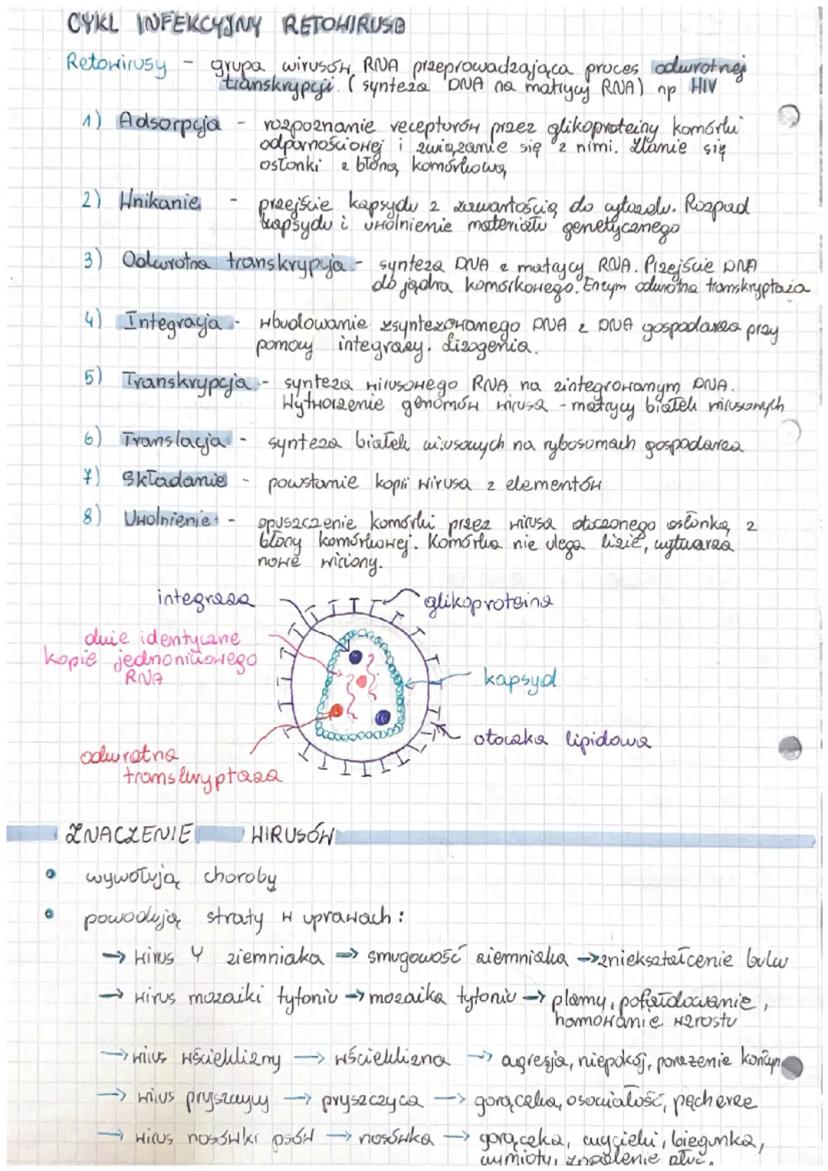 CYKL INFEKCYJNY RETOWIRUSA
Retowirusy - grupa wirusów RNA przeprowadzająca proces odwrotnej
transkrypcji. (synteza DNA na matrycy RNA) np HIV
1) Adsorpcja - rozpoznanie receptorów przez glikoproteiny komórki
odpornościowej i związanie się z nimi. Zlanie się
osłonki z błoną komórkową
2) Wnikanie - przejście kapsydu z zawartością do cytozolu. Rozpad
kapsydu i uwolnienie materiału genetycznego
3) Odwrotna transkrypcja - synteza DNA z matrycy RNA. Przejście DNA
do jądra komórkowego. Enzym odwrotna transkryptaza
4) Integracja - wbudowanie zsyntezowanego DNA z DNA gospodarza przy
pomocy integrazy. Lizogenia.
5) Transkrypcja - synteza wirusowego RNA na zintegrowanym DNA.
Wytworzenie genomów wirusa - matrycy białek wirusowych
6) Translacja - synteza białek wirusowych na rybosomach gospodarza
7) Składanie - powstanie kopii wirusa z elementów
8) Uwolnienie - opuszczenie komórki przez wirusa otoczonego osłonką z
błony komórkowej. Komórka nie ulega lizie, wytwarza
nowe wiriony.
integraza
glikoproteina
dwie identyczne
kopie jednoniciowego
RNA
kapsyd
otoczka lipidowa
odwrotna
transkryptaza
ZNACZENIE WIRUSÓW
• wywołują choroby
• powodują straty w uprawach:
→ wirus Y ziemniaka → smugowość ziemniaka → zniekształcenie bulw
→ wirus mozaiki tytoniu → mozaika tytoniu → plamy, pofałdowanie,
hamowanie wzrostu
→ wirus wścieklizny → wścieklizna → agresja, niepokój, porażenie kończyn
→ wirus pryszczycy → pryszczyca → gorączka, osowiałość, pęcherze
→ wirus nosówki psów → nosówka → gorączka, wycieki, biegunka,
wymioty, zapalenie płuc.